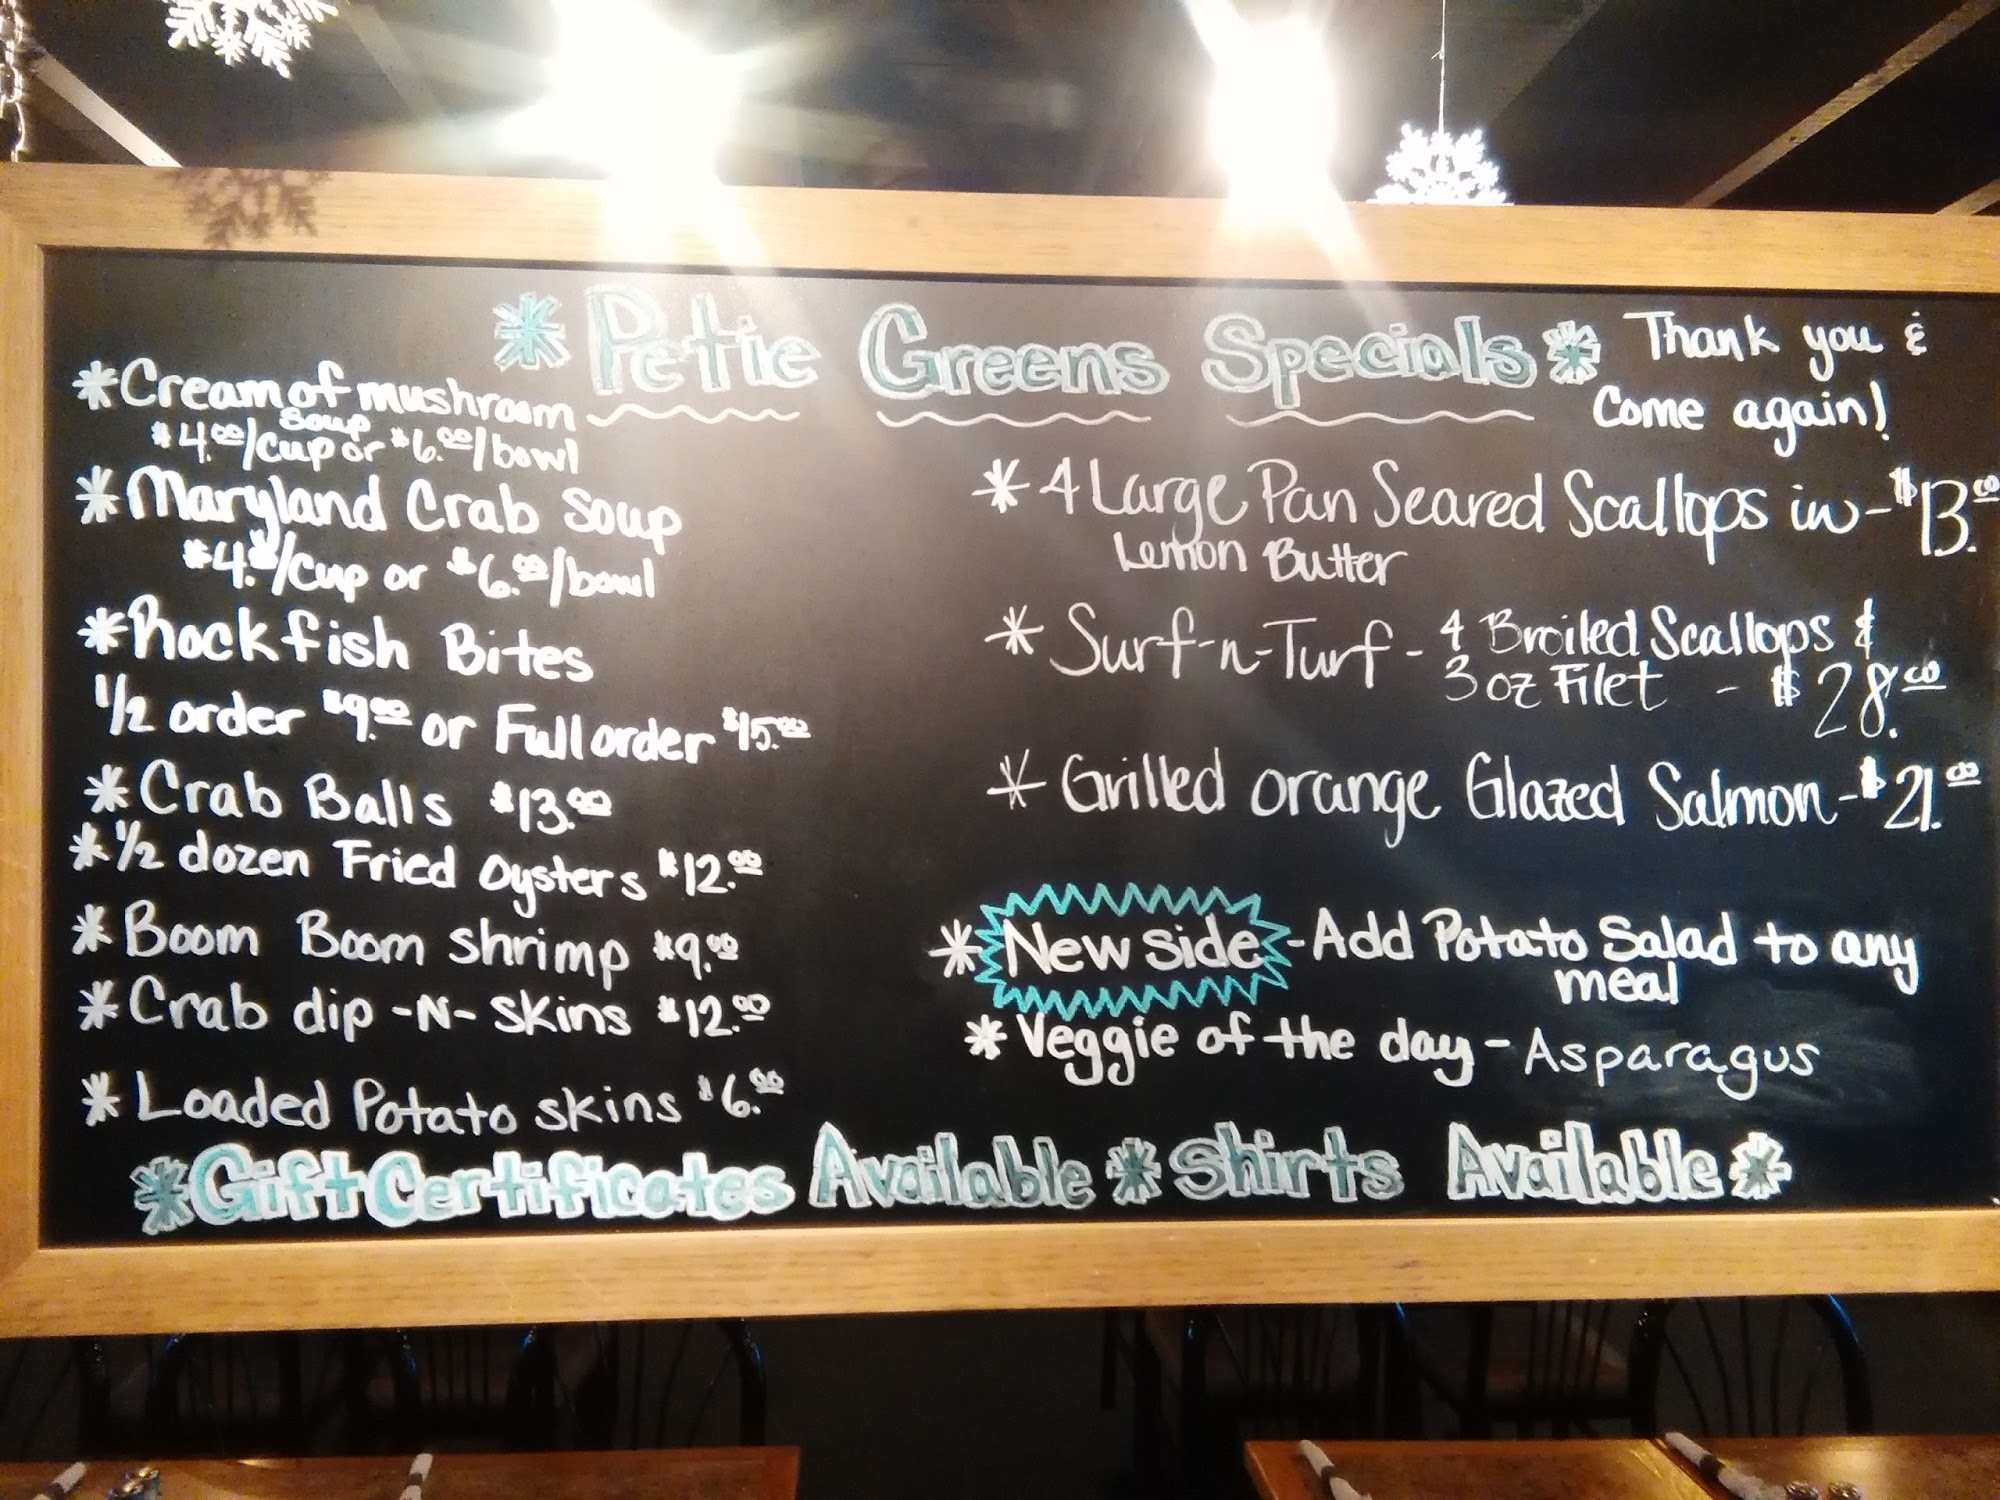 *Petie Greens Specials*
Thank you &
Come again!
*Cream of mushroom
Soup
$4.00/cup or $6.00/bowl
*Maryland Crab Soup
$4.00/cup or $6.00/bowl
*Rockfish Bites
1/2 order $9.00 or Full order $15.00
*Crab Balls $13.00
*1/2 dozen Fried Oysters $12.00
*Boom Boom Shrimp $9.00
*Crab dip -N- skins $12.00
*Loaded Potato skins $6.00
*4 Large Pan Seared Scallops in - $13.00
Lemon Butter
*Surf-n-Turf - 4 Broiled Scallops &
3 oz Filet - $28.00
*Grilled orange Glazed Salmon - $21.00
*New side - Add Potato Salad to any
meal
*Veggie of the day - Asparagus
*Gift Certificates Available * Shirts Available*